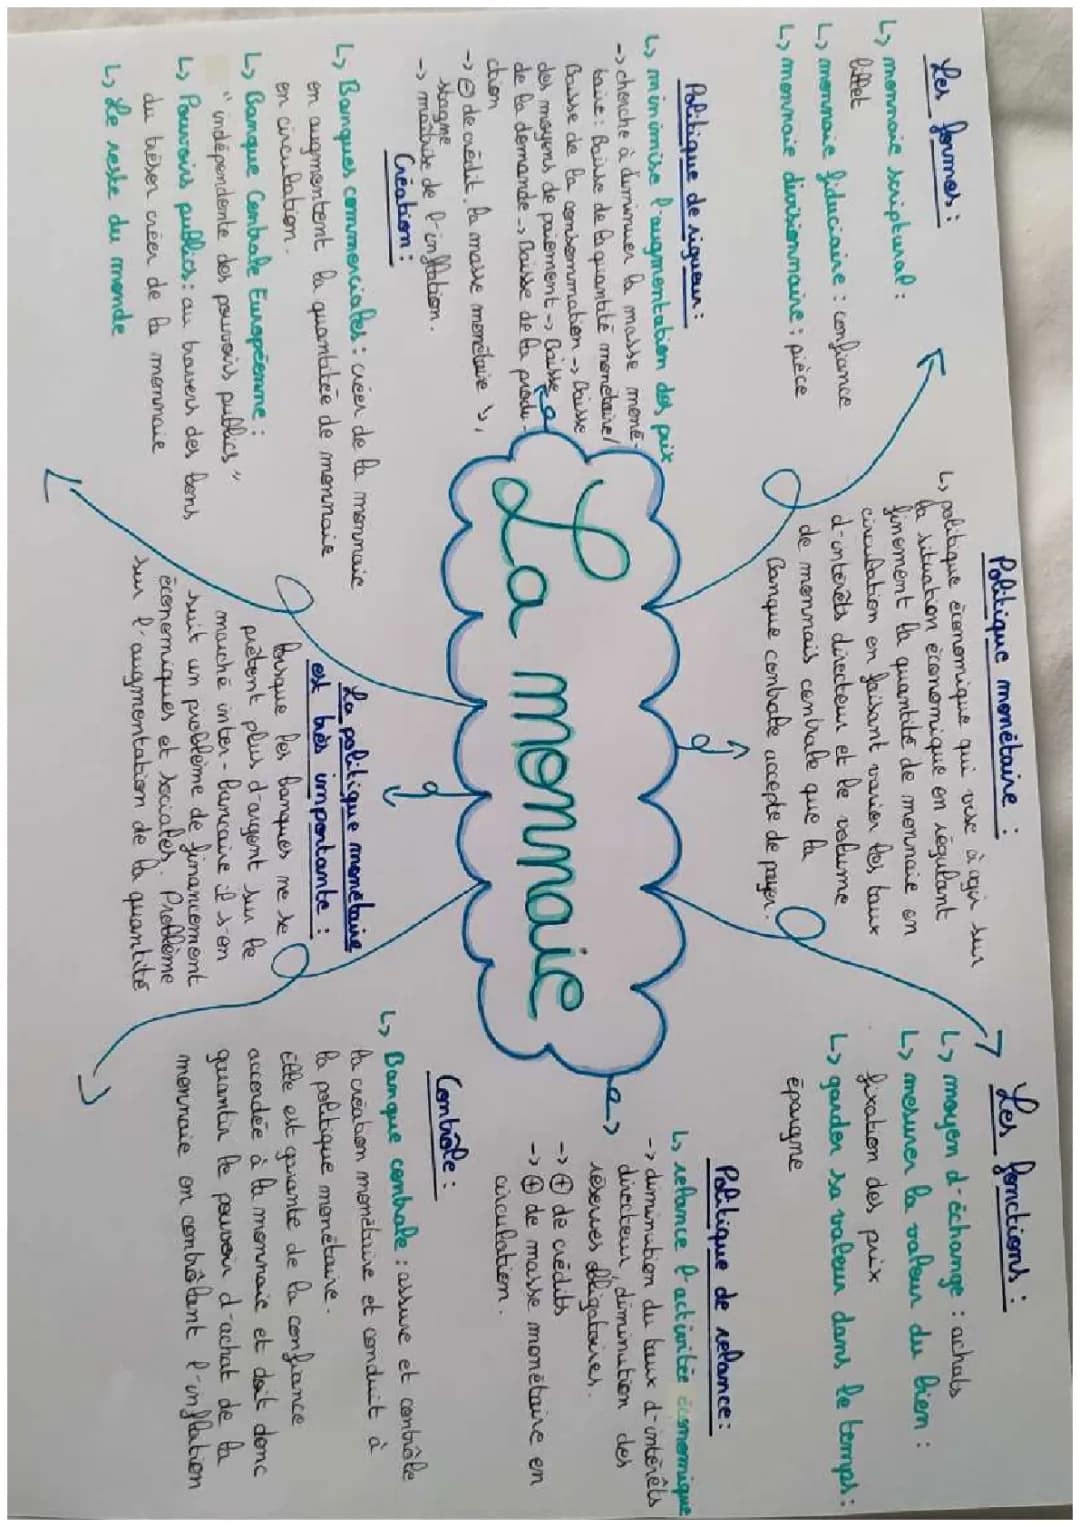 Les formes :
↳ monnaie scriptural :
billet
↳ monnaie fiduciaire : confiance
↳ monnaie divisionnaire : pièce
Politique monétaire :
↳ politique économique qui vise à agir sur
la situation économique en régulant
finement la quantité de monnaie en
circulation en faisant varier les taux
d'intérêts directeur et le volume
de monnais centrale que la
Banque centrale accepte de payer.
Les fonctions :
↳ moyen d'échange : achats
↳ mesurer la valeur du bien :
fixation des prix
↳ garder sa valeur dans le temps :
épargne
Politique de rigueur :
↳ minimise l'augmentation des prix
-> cherche à diminuer la masse moné-
taire : Baisse de la quantité monétaire/
Baisse de la consommation -> Baisse
des moyens de paiement -> Baisse
de la demande -> Baisse de la produ-
ction
-> ⊖ de crédit, la masse monétaire ↘,
stagne
-> maîtrise de l'inflation.
La monnaie
Politique de relance :
↳ relance l'activitée économique
-> diminution du taux d'intérêts
directeur, diminution des
réserves obligatoires.
-> ⊕ de crédits
-> ⊕ de masse monétaire en
circulation.
Création :
↳ Banques commerciales : créer de la monnaie
en augmentant la quantitée de monnaie
en circulation.
↳ Banque Centrale Européenne :
"indépendente des pouvoirs publics"
↳ Pouvoirs publics : au travers des bons
du trésor créer de la monnaie
↳ Le reste du monde
La politique monétaire
est très importante :
lorsque les banques ne se
prêtent plus d'argent sur le
marché inter-bancaire il s'en
suit un problème de financement
économiques et sociales. Problème
sur l'augmentation de la quantité
Contrôle :
↳ Banque centrale : assure et contrôle
la création monétaire et conduit à
la politique monétaire.
Elle est garante de la confiance
accordée à la monnaie et doit donc
garantir le pouvoir d'achat de la
monnaie en contrôlant l'inflation